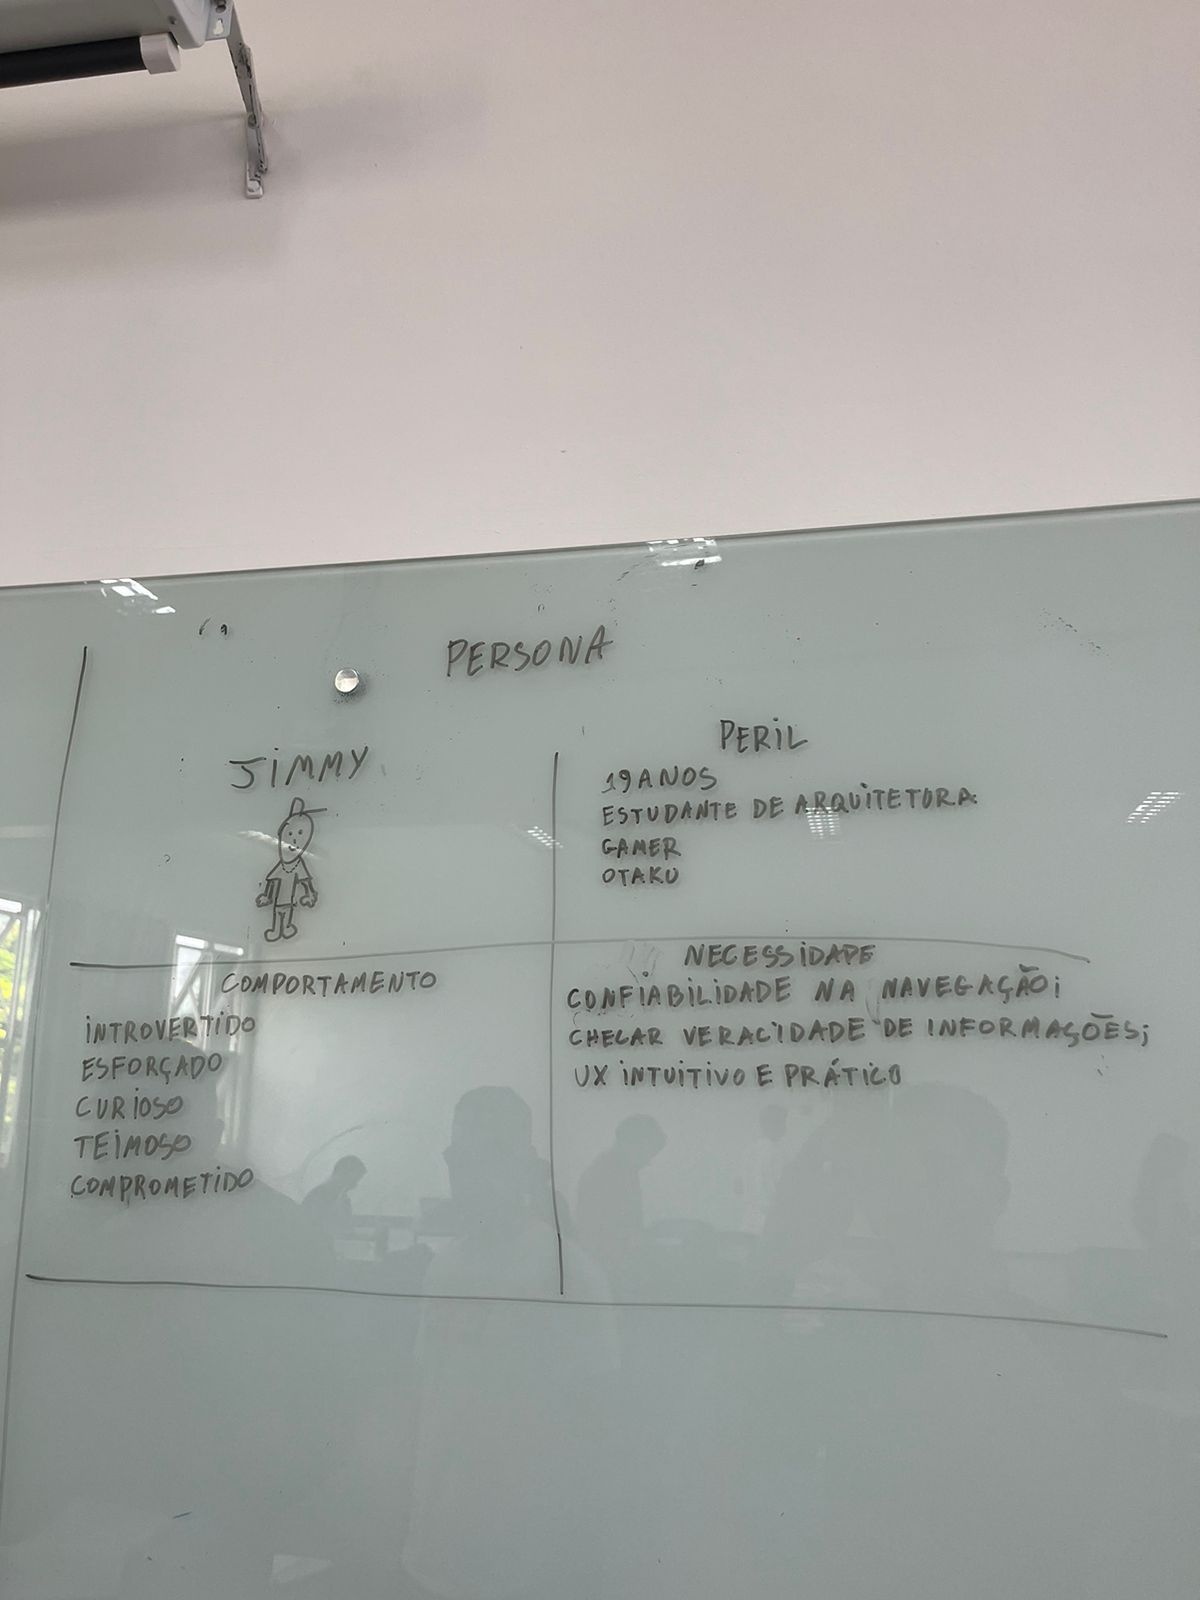 PERSONA
JIMMY
PERIL
19 ANOS
ESTUDANTE DE ARQUITETORA
GAMER
OTAKU
COMPORTAMENTO
INTROVERTIDO
ESFORÇADO
CURIOSO
TEIMOSO
COMPROMETIDO
NECESSIDADE
CONFIABILIDADE NA NAVEGAÇÃO;
CHECAR VERACIDADE DE INFORMAÇÕES;
UX INTUITIVO E PRÁTICO